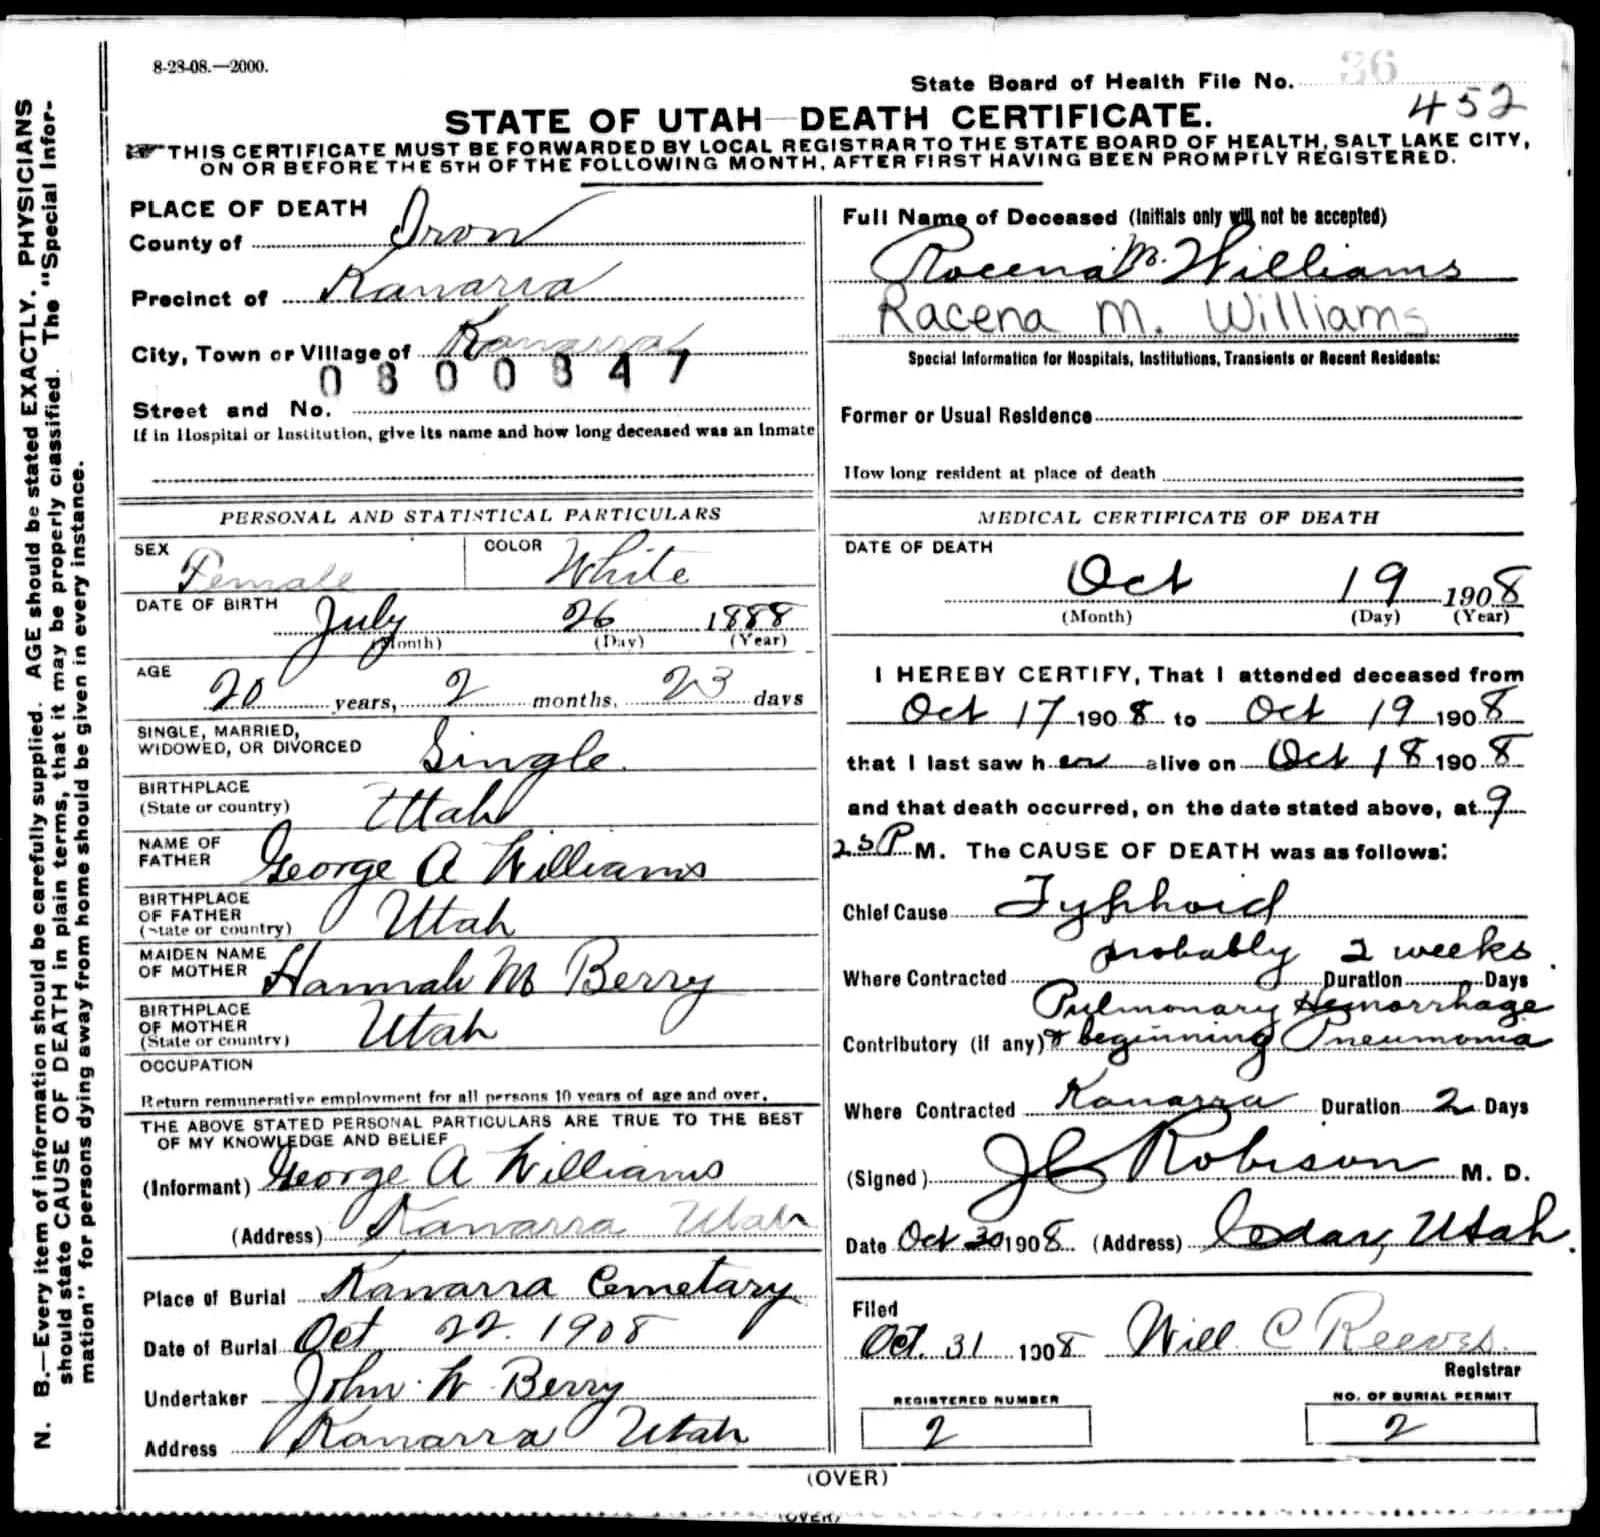 8-28-08.—2000.
State Board of Health File No. 36
452
STATE OF UTAH—DEATH CERTIFICATE.
THIS CERTIFICATE MUST BE FORWARDED BY LOCAL REGISTRAR TO THE STATE BOARD OF HEALTH, SALT LAKE CITY,
ON OR BEFORE THE 5TH OF THE FOLLOWING MONTH, AFTER FIRST HAVING BEEN PROMPTLY REGISTERED.
N. B.—Every item of information should be carefully supplied. AGE should be stated EXACTLY. PHYSICIANS
should state CAUSE OF DEATH in plain terms, that it may be properly classified. The "Special Infor-
mation" for persons dying away from home should be given in every instance.
PLACE OF DEATH
County of Iron
Precinct of Kanarra
City, Town or Village of Kanarra
0300347
Street and No.
If in Hospital or Institution, give its name and how long deceased was an Inmate
PERSONAL AND STATISTICAL PARTICULARS
SEX Female COLOR White
DATE OF BIRTH July 26 1888
(Month) (Day) (Year)
AGE 20 years, 2 months, 23 days
SINGLE, MARRIED,
WIDOWED, OR DIVORCED Single.
BIRTHPLACE
(State or country) Utah
NAME OF
FATHER George A Williams
BIRTHPLACE
OF FATHER
(State or country) Utah
MAIDEN NAME
OF MOTHER Hannah M Berry
BIRTHPLACE
OF MOTHER
(State or country) Utah
OCCUPATION
Return remunerative employment for all persons 10 years of age and over.
THE ABOVE STATED PERSONAL PARTICULARS ARE TRUE TO THE BEST
OF MY KNOWLEDGE AND BELIEF
(Informant) George A Williams
(Address) Kanarra Utah
Place of Burial Kanarra Cemetary
Date of Burial Oct 22. 1908
Undertaker John W Berry
Address Kanarra Utah
Full Name of Deceased (Initials only will not be accepted)
Rocena M. Williams
Racena M. Williams
Special Information for Hospitals, Institutions, Transients or Recent Residents:
Former or Usual Residence
How long resident at place of death
MEDICAL CERTIFICATE OF DEATH
DATE OF DEATH
Oct 19 1908
(Month) (Day) (Year)
I HEREBY CERTIFY, That I attended deceased from
Oct 17 1908 to Oct 19 1908
that I last saw her alive on Oct 18 1908
and that death occurred, on the date stated above, at 9
25 P M. The CAUSE OF DEATH was as follows:
Chief Cause Typhoid
probably 2 weeks
Where Contracted Duration Days
Pulmonary Hemorrhage
Contributory (if any) & beginning Pneumonia
Where Contracted Kanarra Duration 2 Days
(Signed) J C Robison M. D.
Date Oct 30 1908 (Address) Cedar, Utah.
Filed
Oct. 31 1908 Will. C Reeves.
Registrar
REGISTERED NUMBER
2
NO. OF BURIAL PERMIT
2
(OVER)
(OVER)